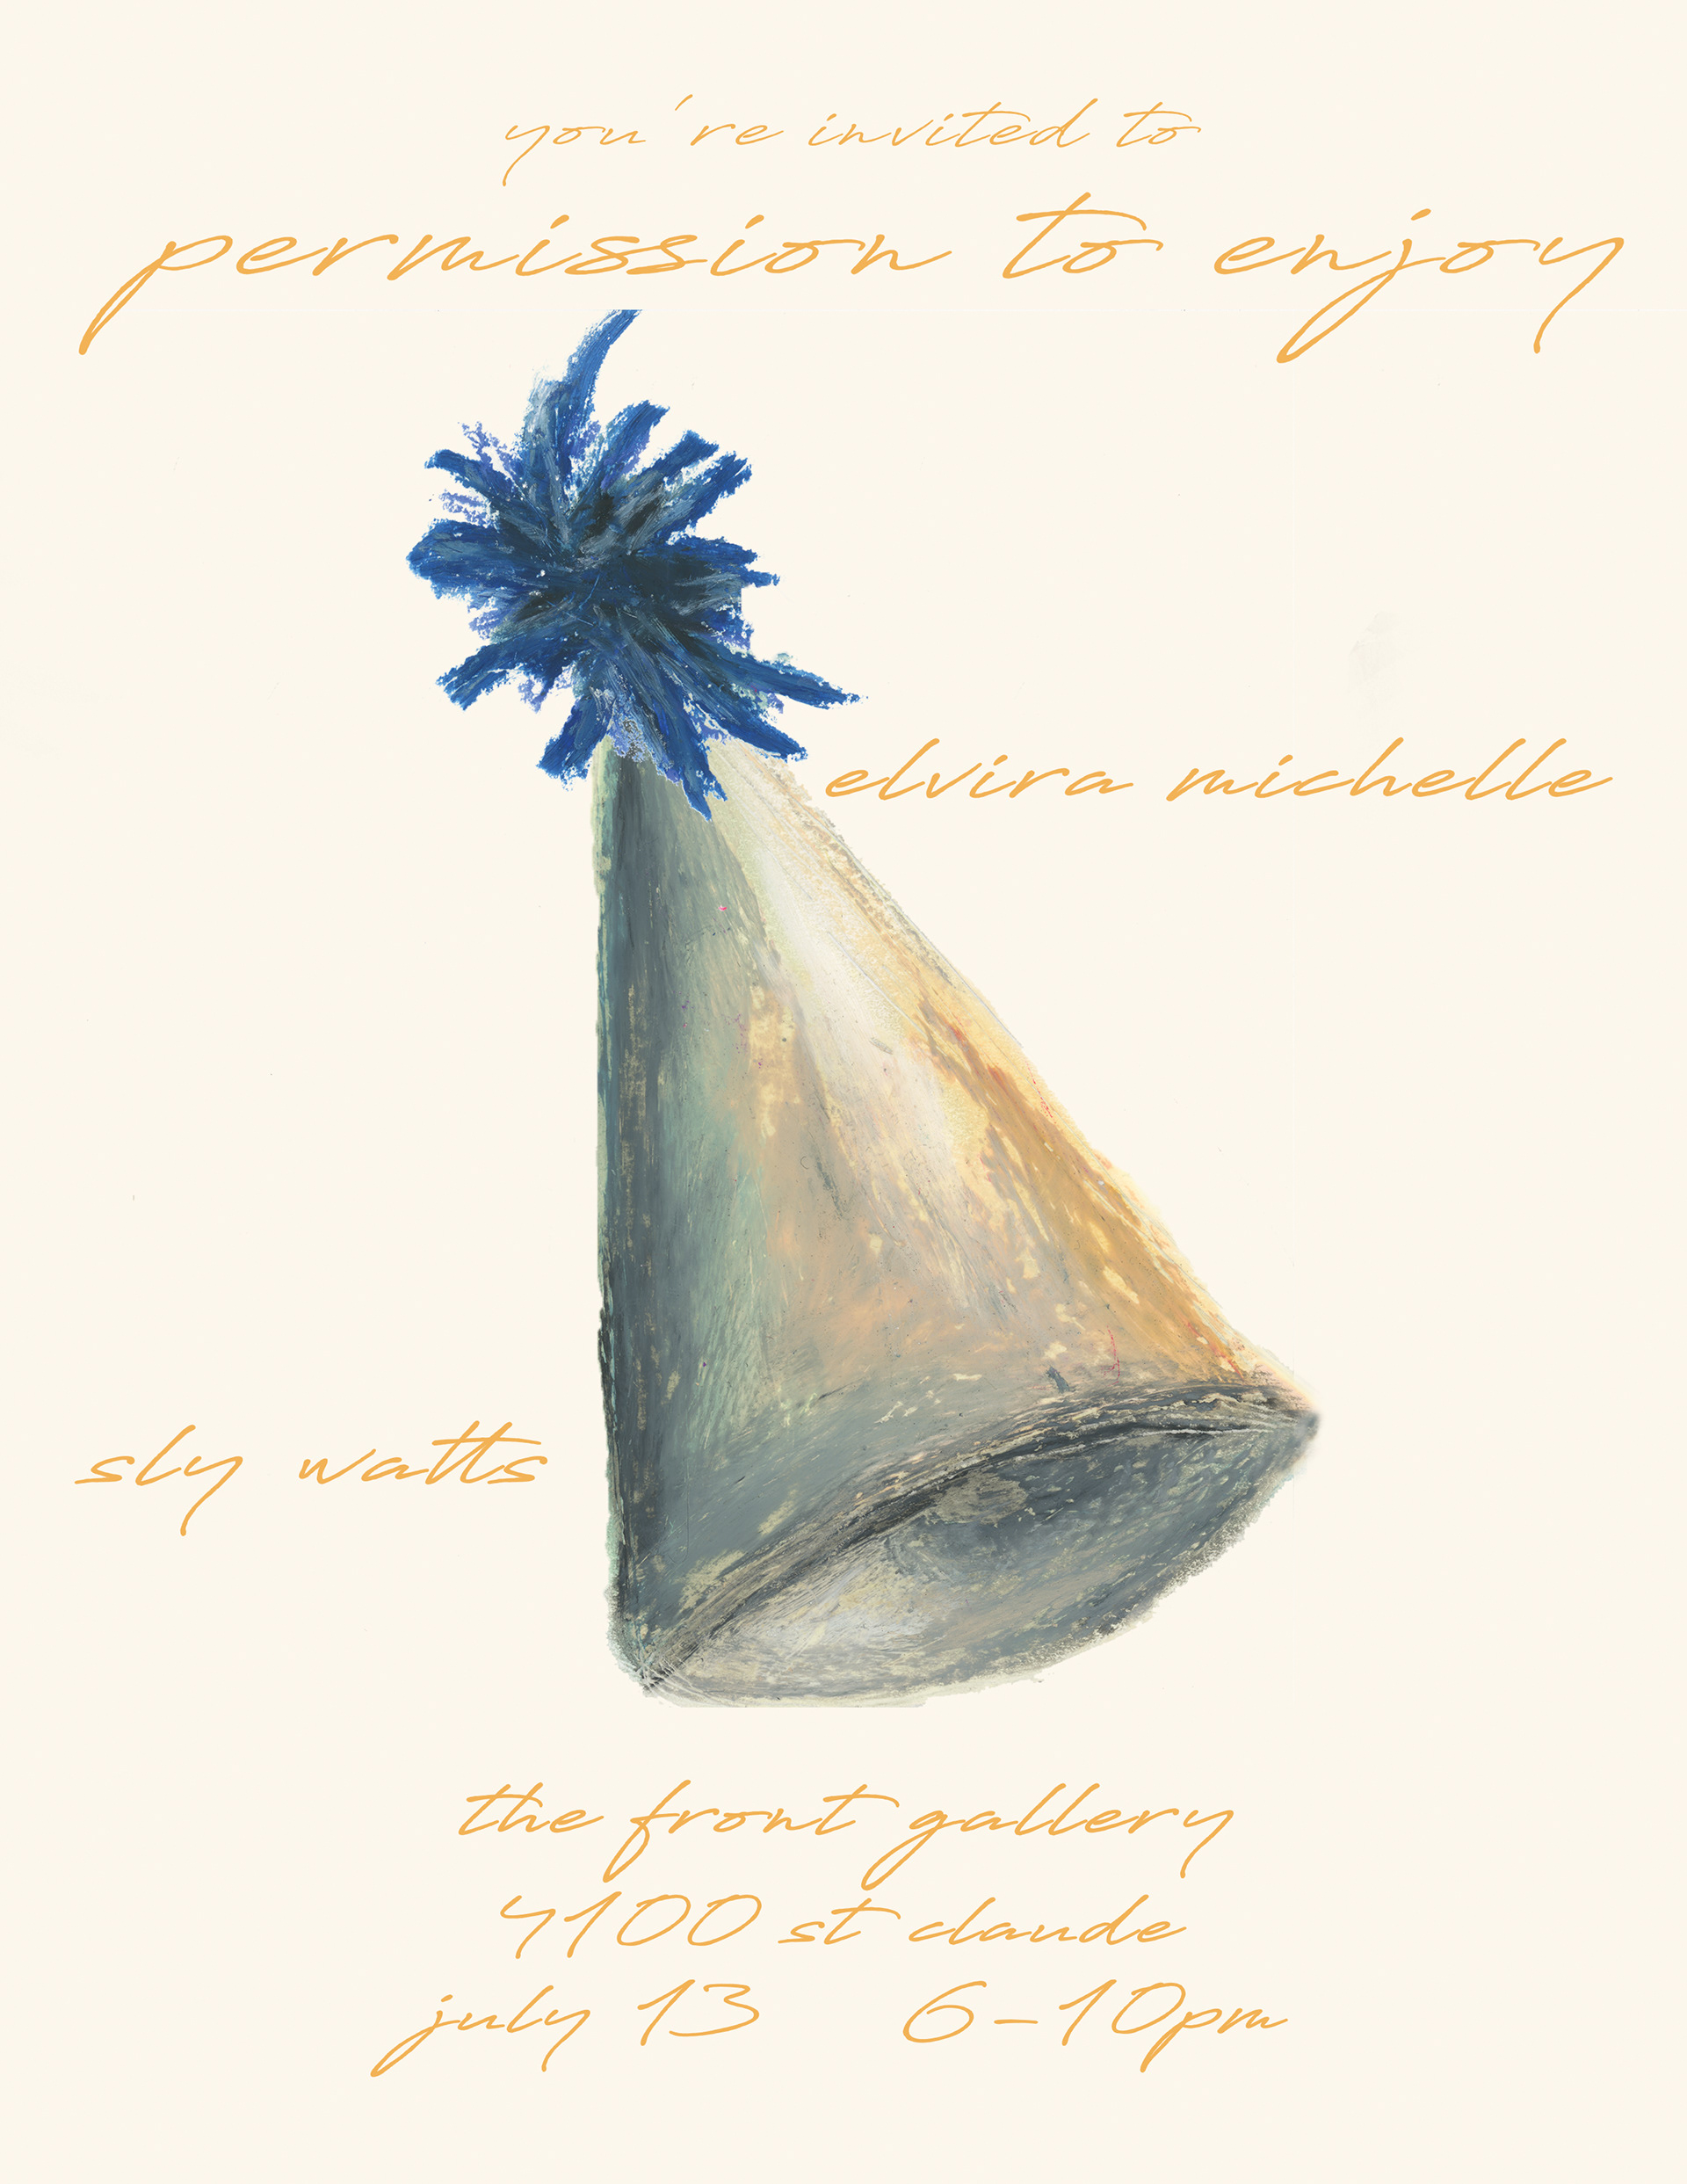 you're invited to
permission to enjoy
elvira michelle
sly watts
the front gallery
4100 st claude
july 13 6-10pm